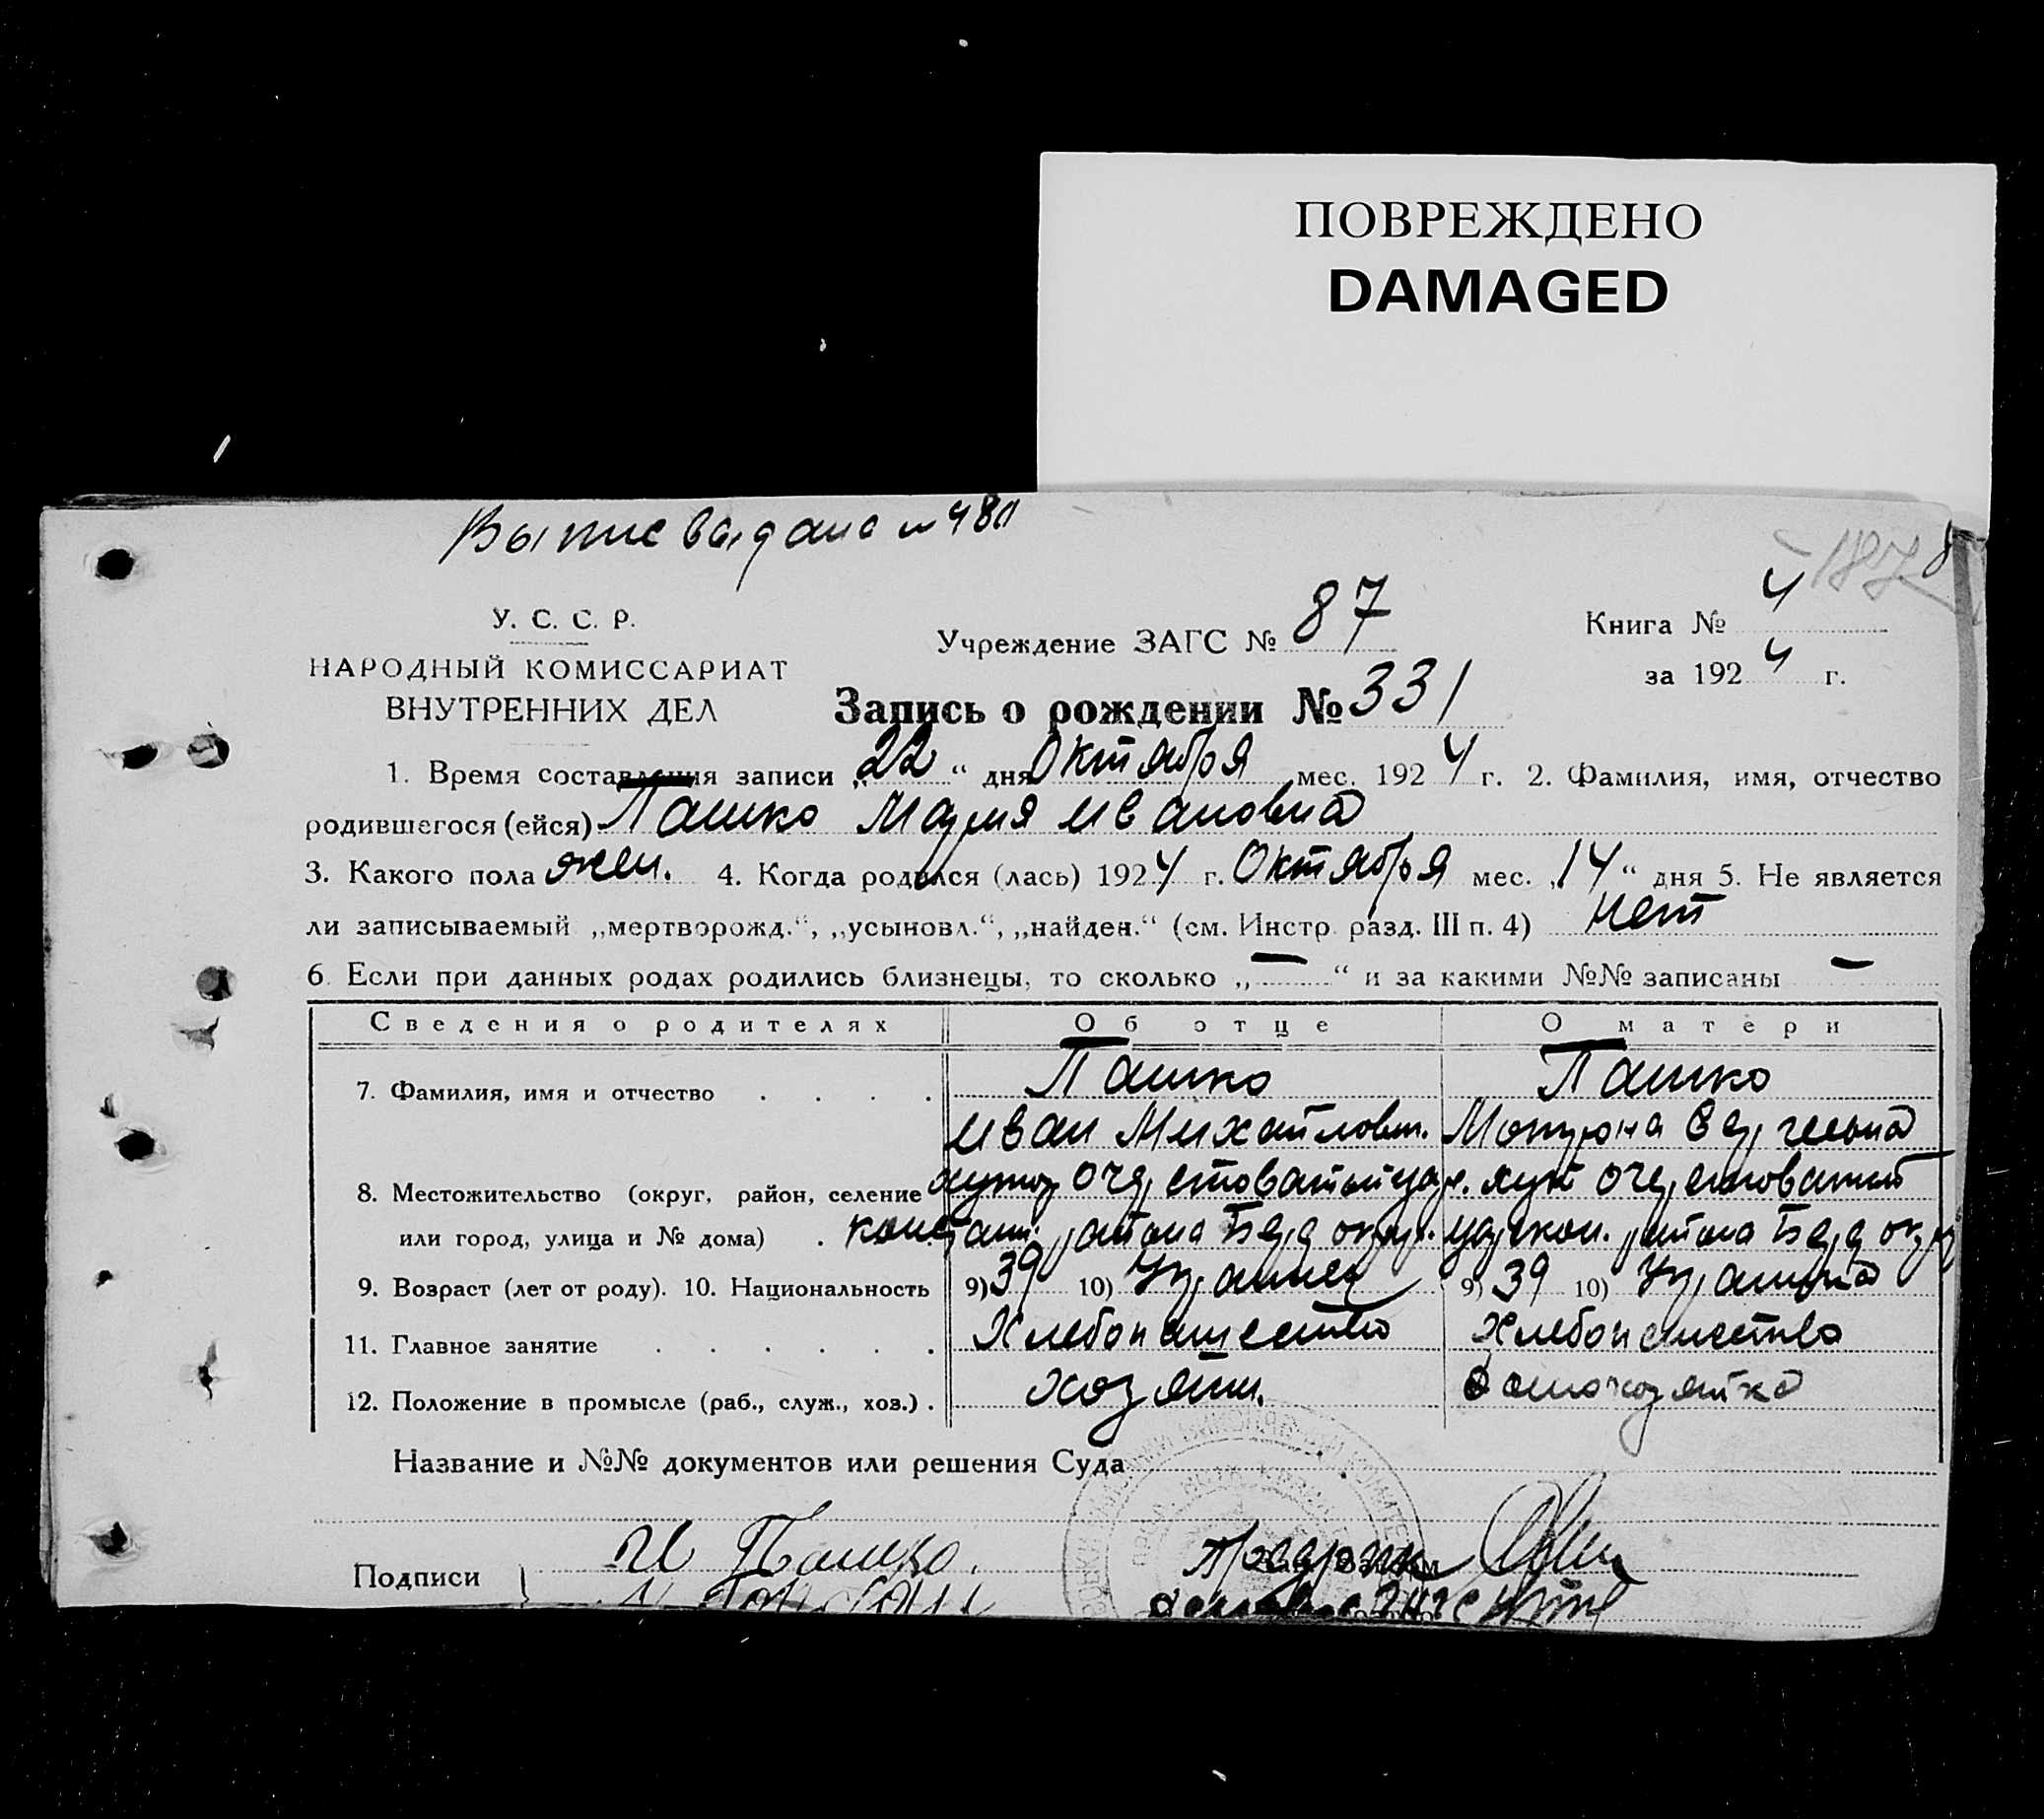 ПОВРЕЖДЕНО
DAMAGED
Выпис выдана № 480
187
У. С. С. Р.
НАРОДНЫЙ КОМИССАРИАТ
ВНУТРЕННИХ ДЕЛ
Учреждение ЗАГС № 87
Книга № 4
за 1924 г.
Запись о рождении № 331
1. Время составления записи „22“ дня Октября мес. 1924 г. 2. Фамилия, имя, отчество
родившегося (ейся) Пашко Мария Ивановна
3. Какого пола жен. 4. Когда родился (лась) 1924 г. Октября мес. „14“ дня 5. Не является
ли записываемый „мертворожд.“, „усыновл.“, „найден.“ (см. Инстр. разд. III п. 4) нет
6. Если при данных родах родились близнецы, то сколько „—“ и за какими №№ записаны —
Сведения о родителях Об отце О матери
7. Фамилия, имя и отчество . . . . Пашко Пашко
Иван Михайлович. Сергеевна
8. Местожительство (округ, район, селение
или город, улица и № дома) . района Берд округ. района Берд окр
9. Возраст (лет от роду). 10. Национальность 9) 39 10) Украинец 9) 39 10) Украинка
11. Главное занятие . . . . . . Хлебопашество Хлебопашество
12. Положение в промысле (раб., служ., хоз.) . хозяин. домохозяйка
Название и №№ документов или решения Суда
Подписи И Пашко.